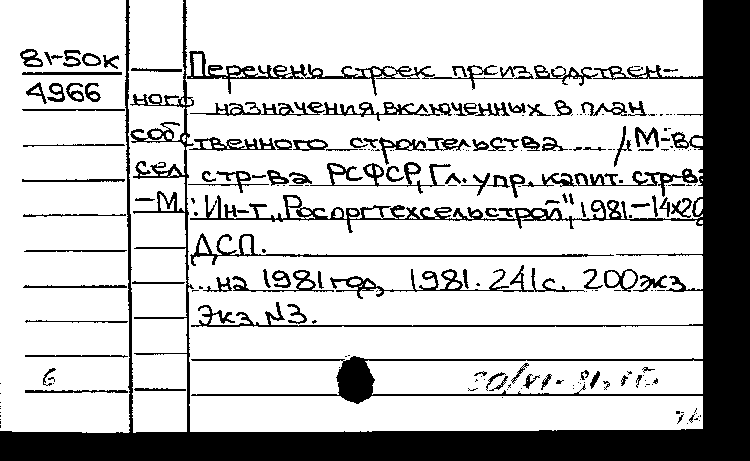 81-50к Перечень строек производствен-
4966 ного назначения, включенных в план
собственного строительства ... /М-во
сел. стр-ва РСФСР, Гл. упр. капит. стр-ва
-М.: Ин-т „Росоргтехсельстрой", 1981.-14х20
ДСП.
...на 1981 год, 1981. 241с. 200экз
Экз. N3.
6